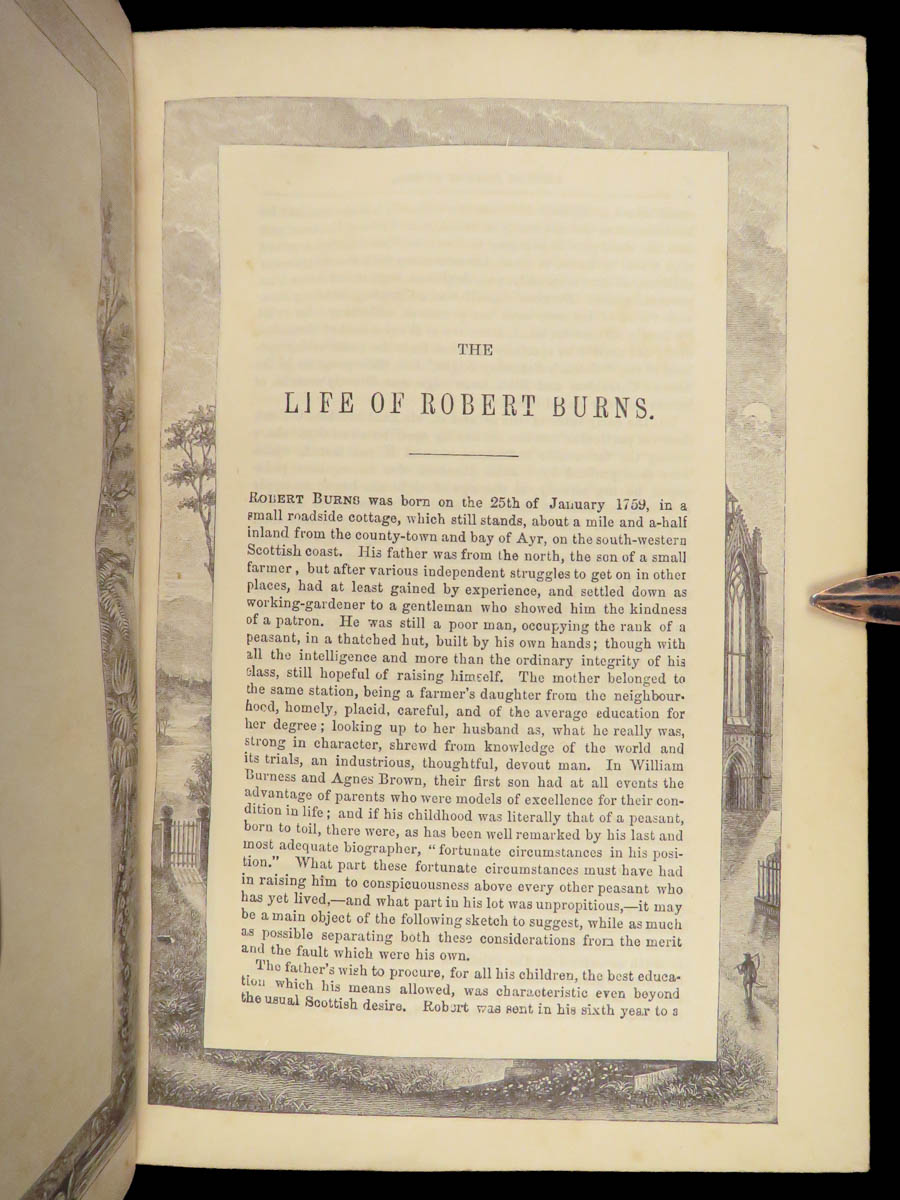 THE
LIFE OF ROBERT BURNS.
ROBERT BURNS was born on the 25th of January 1759, in a
small roadside cottage, which still stands, about a mile and a-half
inland from the county-town and bay of Ayr, on the south-western
Scottish coast. His father was from the north, the son of a small
farmer, but after various independent struggles to get on in other
places, had at least gained by experience, and settled down as
working-gardener to a gentleman who showed him the kindness
of a patron. He was still a poor man, occupying the rank of a
peasant, in a thatched hut, built by his own hands; though with
all the intelligence and more than the ordinary integrity of his
class, still hopeful of raising himself. The mother belonged to
the same station, being a farmer's daughter from the neighbour-
hood, homely, placid, careful, and of the average education for
her degree; looking up to her husband as, what he really was,
strong in character, shrewd from knowledge of the world and
its trials, an industrious, thoughtful, devout man. In William
Burness and Agnes Brown, their first son had at all events the
advantage of parents who were models of excellence for their con-
dition in life; and if his childhood was literally that of a peasant,
born to toil, there were, as has been well remarked by his last and
most adequate biographer, "fortunate circumstances in his posi-
tion." What part these fortunate circumstances must have had
in raising him to conspicuousness above every other peasant who
has yet lived,—and what part in his lot was unpropitious,—it may
be a main object of the following sketch to suggest, while as much
as possible separating both these considerations from the merit
and the fault which were his own.
The father's wish to procure, for all his children, the best educa-
tion which his means allowed, was characteristic even beyond
the usual Scottish desire. Robert was sent in his sixth year to a